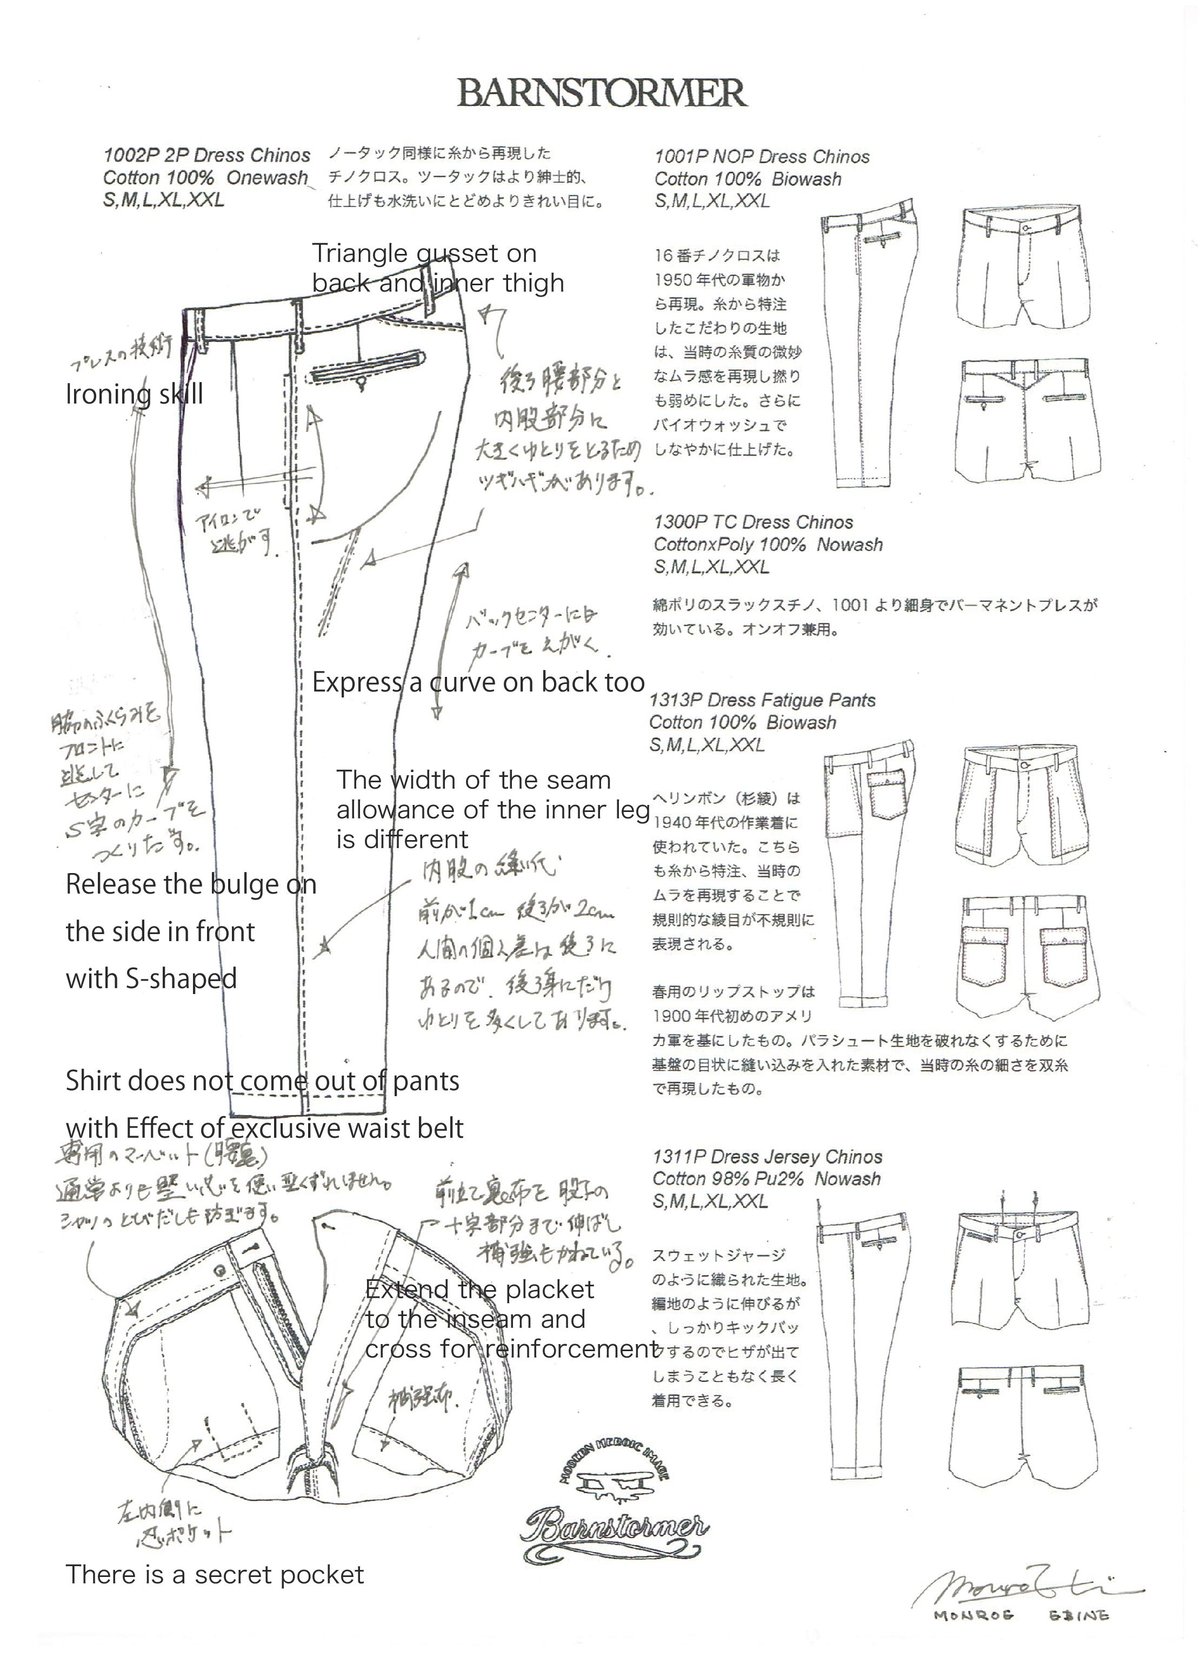 BARNSTORMER
1002P 2P Dress Chinos
Cotton 100% Onewash
S,M,L,XL,XXL
ノータック同様に糸から再現した
チノクロス。ツータックはより紳士的、
仕上げも水洗いにとどめよりきれい目に。
Triangle gusset on
back and inner thigh
プレスの技術
Ironing skill
後ろ腰部分と
内股部分に
大きくゆとりをとるため
ツギハギがあります。
アイロンで
逃がす。
バックセンターには
カーブをえがく
Express a curve on back too
脇のふくらみを
フロントに
逃して
センターに
S字のカーブを
つくりだす。
The width of the seam
allowance of the inner leg
is different
内股の縫い代
前が1cm 後ろが2cm
人間の個人差は後ろに
あるので、後ろ身にだけ
ゆとりを多くしております。
Release the bulge on
the side in front
with S-shaped
Shirt does not come out of pants
with Effect of exclusive waist belt
専用のマーベルト(腰裏)
通常よりも堅い芯を使い型くずれしません。
シャツのとびだしも防ぎます。
前立て裏布を股下の
十字部分まで伸ばし
補強もかねている。
Extend the placket
to the inseam and
cross for reinforcement
補強布.
左内側に
忍ポケット
There is a secret pocket
1001P NOP Dress Chinos
Cotton 100% Biowash
S,M,L,XL,XXL
16番チノクロスは
1950年代の軍物か
ら再現。糸から特注
したこだわりの生地
は、当時の糸質の微妙
なムラ感を再現し撚り
も弱めにした。さらに
バイオウォッシュで
しなやかに仕上げた。
1300P TC Dress Chinos
CottonxPoly 100% Nowash
S,M,L,XL,XXL
綿ポリのスラックスチノ、1001より細身でパーマネントプレスが
効いている。オンオフ兼用。
1313P Dress Fatigue Pants
Cotton 100% Biowash
S,M,L,XL,XXL
ヘリンボン（杉綾）は
1940年代の作業着に
使われていた。こちら
も糸から特注、当時の
ムラを再現することで
規則的な綾目が不規則に
表現される。
春用のリップストップは
1900年代初めのアメリ
カ軍を基にしたもの。パラシュート生地を破れなくするために
基盤の目状に縫い込みを入れた素材で、当時の糸の細さを双糸
で再現したもの。
1311P Dress Jersey Chinos
Cotton 98% Pu2% Nowash
S,M,L,XL,XXL
スウェットジャージ
のように織られた生地。
編地のように伸びるが
、しっかりキックバッ
クするのでヒザが出て
しまうこともなく長く
着用できる。
MODERN HEROIC IMAGE
Barnstormer
MONROE EBINE